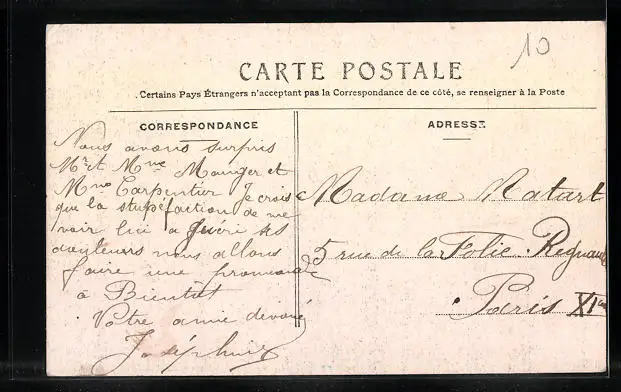 10
CARTE POSTALE
Certains Pays Étrangers n'acceptant pas la Correspondance de ce côté, se renseigner à la Poste
CORRESPONDANCE
Nous avons surpris
Mr et Mme Mauger et
Mme Carpentier Je crois
que la stupéfaction de me
voir ici a guéri ses
douleurs nous allons
faire une promenade
a Bientôt
Votre amie dévouée
Joséphine
ADRESSE
Madame Matart
5 rue de la Folie Regnault
Paris XIe